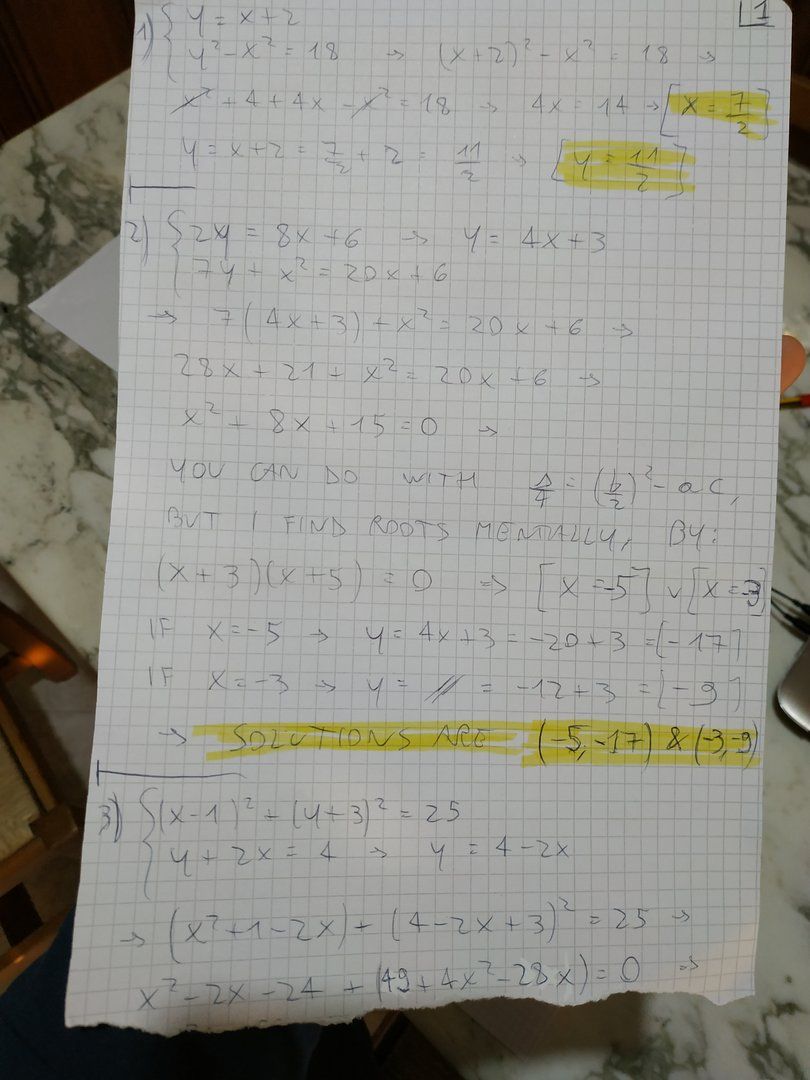 1
1) { y = x+2
y² - x² = 18 → (x+2)² - x² = 18 →
x² + 4 + 4x - x² = 18 → 4x = 14 → [x = 7/2]
y = x+2 = 7/2 + 2 = 11/2 → [y = 11/2]
2) { 2y = 8x + 6 → y = 4x+3
7y + x² = 20x + 6
→ 7(4x+3) + x² = 20x + 6 →
28x + 21 + x² = 20x + 6 →
x² + 8x + 15 = 0 →
YOU CAN DO WITH Δ/4 = (b/2)² - ac,
BUT I FIND ROOTS MENTALLY, BY:
(x+3)(x+5) = 0 ⇒ [x = -5] ∨ [x = -3]
IF x = -5 → y = 4x+3 = -20+3 = [-17]
IF x = -3 → y = // = -12+3 = [-9]
→ SOLUTIONS ARE (-5,-17) & (-3,-9)
3) { (x-1)² + (y+3)² = 25
y + 2x = 4 → y = 4-2x
→ (x²+1-2x) + (4-2x+3)² = 25 →
x² - 2x - 24 + (49 + 4x² - 28x) = 0 ⇒